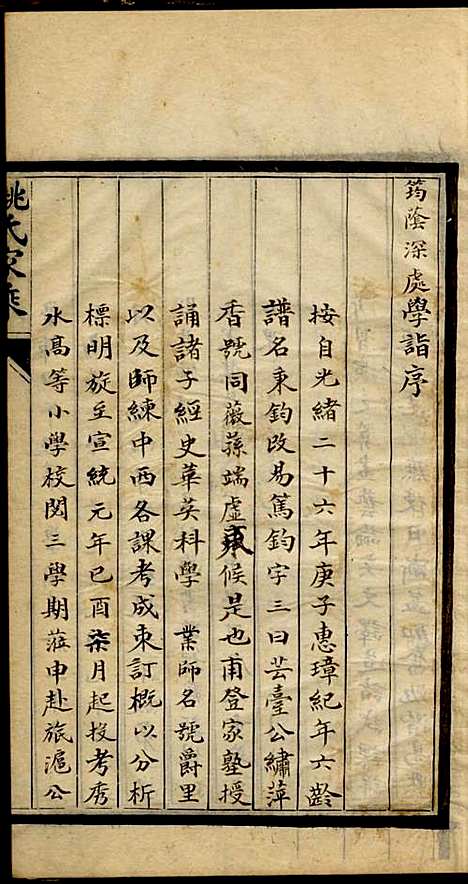 筠蔭深處學詣序
按自光緒二十六年庚子惠璋紀年六齡
譜名秉鈞改易篤鈞字三曰芸臺公繡萍
香號同薇蓀端虛東候是也甫登家塾授
誦諸子經史華英科學 業師名號爵里
以及師練中西各課考成束訂概以分析
標明旋至宣統元年己酉柒月起投考秀
水高等小學校閱三學期蒞申赴旅滬公
姚氏家乘